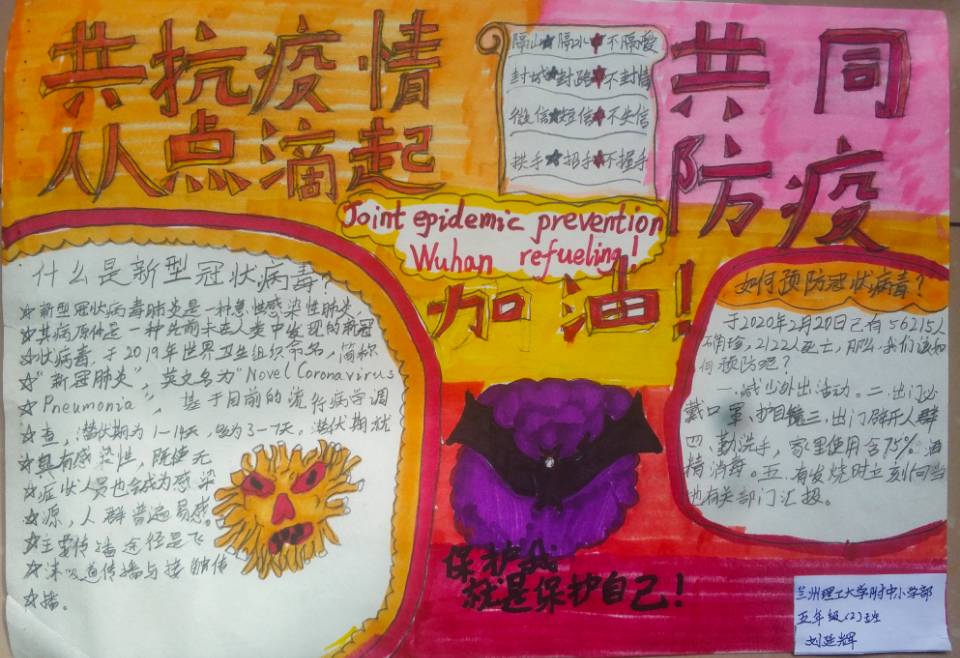 共抗疫情
从点滴起
隔山★隔水♦不隔爱
封城★封路♦不封情
微信★短信♦不失信
拱手★招手♦不握手
共同
防疫
Joint epidemic prevention
Wuhan refueling!
加油!
什么是新型冠状病毒?
☆新型冠状病毒肺炎是一种急性感染性肺炎
☆其病原体是一种先前未在人类中发现的新冠
☆状病毒. 于2019年世界卫生组织命名,简称
☆"新冠肺炎", 英文名为"Novel Coronavirus
☆Pneumonia", 基于目前的流行病学调
☆查, 潜伏期为1-14天, 多为3-7天. 潜伏期就
☆具有感染性, 既使无
☆症状人员也会成为感染
☆源, 人群普遍易感。
☆主要传播途径是飞
☆沫呼吸道传播与接触传
☆播。
如何预防冠状病毒?
于2020年2月20日已有56215人
确诊, 2122人死亡, 那么我们该如
何预防呢?
一.减少外出活动. 二.出门必
戴口罩.护目镜三.出门避开人群
四.勤洗手, 家里使用含75%酒
精消毒。五.有发烧时立刻向当
地有关部门汇报。
保护我
就是保护自己!
兰州理工大学附中小学部
五年级(2)班